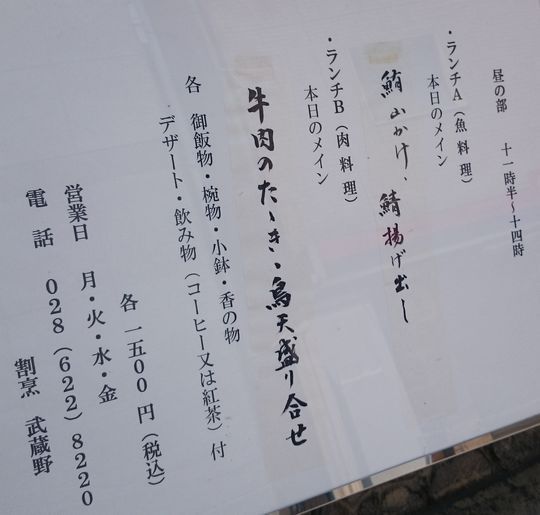 昼の部　十一時半〜十四時
・ランチA（魚料理）
本日のメイン
鮪山かけ、鯖揚げ出し
・ランチB（肉料理）
本日のメイン
牛肉のたゝき、鳥天盛り合せ
各　御飯物・椀物・小鉢・香の物
デザート・飲み物（コーヒー又は紅茶）付
各　一五00円（税込）
営業日　月・火・水・金
電　話　028（622）8220
割烹　武蔵野